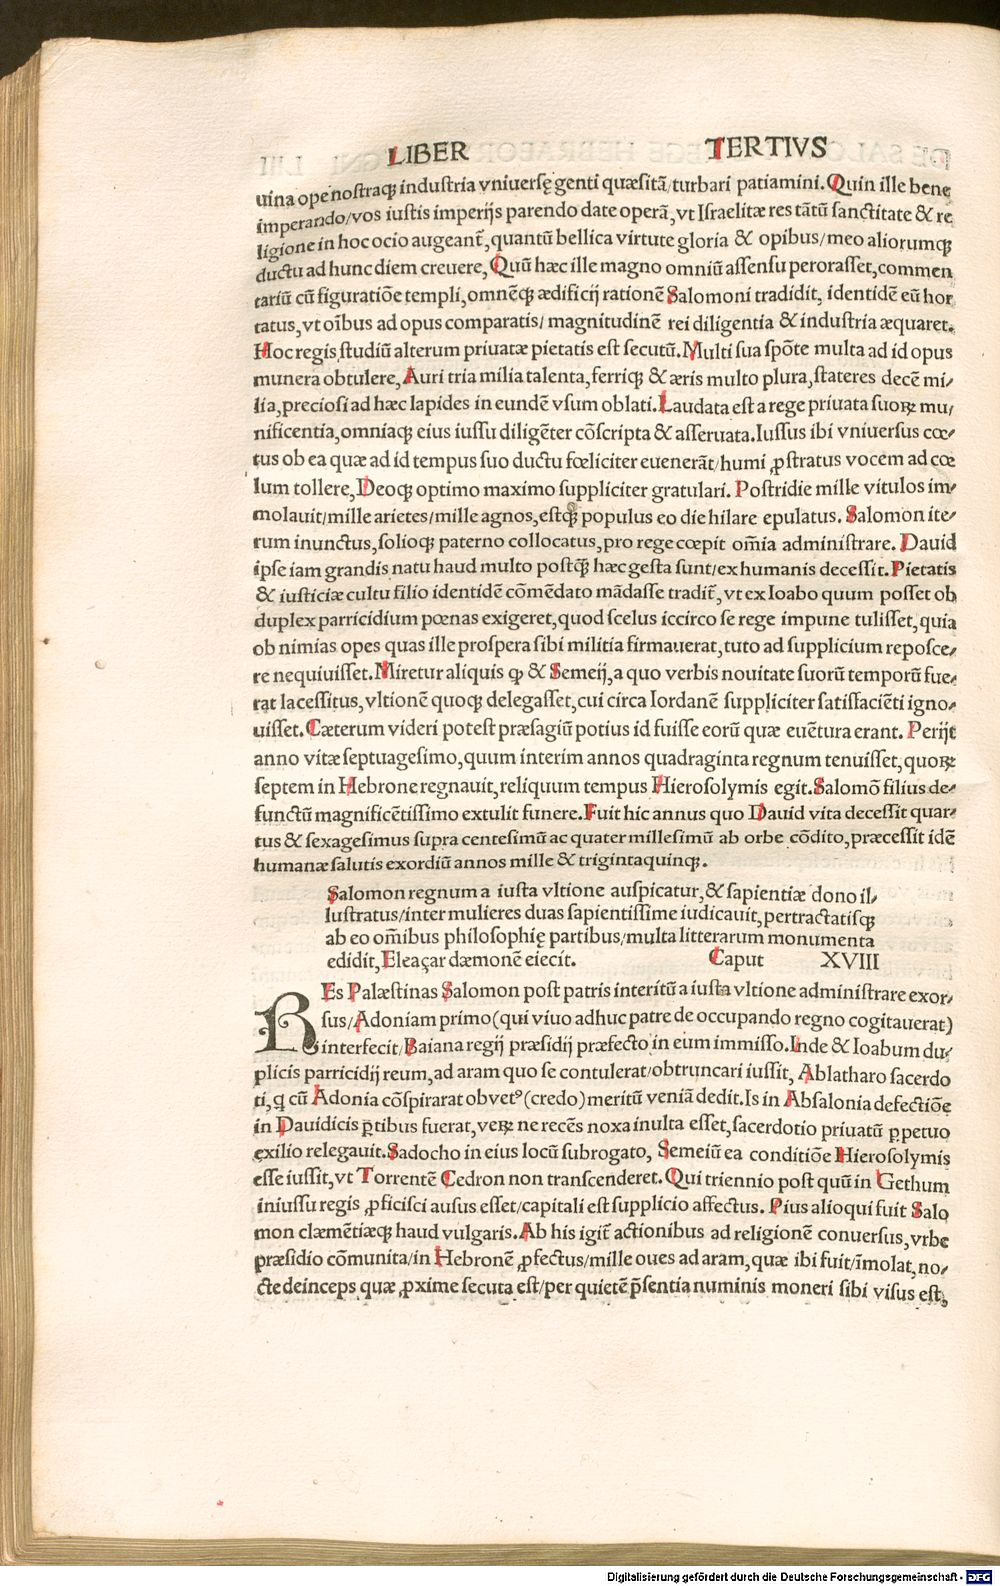 LIBER TERTIVS
uina ope nostraqꝫ industria vniuersę genti quæsitā/turbari patiamini. Quin ille bene
imperando/vos iustis imperijs parendo date operā, vt Israelitæ res tātū sanctitate & re
ligione in hoc ocio augeant̄, quantū bellica virtute gloria & opibus/meo aliorumqꝫ
ductu ad hunc diem creuere, Quū hæc ille magno omniū assensu perorasset, commen
tariū cū figuratiōe templi, omnēqꝫ ædificij rationē Salomoni tradidit, identidē eū hor
tatus, vt oībus ad opus comparatis/ magnitudinē rei diligentia & industria æquaret.
Hoc regis studiū alterum priuatæ pietatis est secutū. Multi sua spōte multa ad id opus
munera obtulere, Auri tria milia talenta, ferriqꝫ & æris multo plura, stateres decē mi/
lia, preciosi ad hæc lapides in eundē vsum oblati. Laudata est a rege priuata suoꝝ mu/
nificentia, omniaqꝫ eius iussu diligēter cōscripta & asseruata. Iussus ibi vniuersus cœ/
tus ob ea quæ ad id tempus suo ductu fœliciter euenerāt/humi ꝓstratus vocem ad cœ
lum tollere, Deoqꝫ optimo maximo suppliciter gratulari. Postridie mille vitulos im/
molauit/mille arietes/mille agnos, estqꝫ populus eo die hilare epulatus. Salomon ite/
rum inunctus, solioqꝫ paterno collocatus, pro rege cœpit om̄ia administrare. Dauid
ipse iam grandis natu haud multo postqꝫ̄ hæc gesta sunt/ex humanis decessit. Pietatis
& iusticiæ cultu filio identidē cōmēdato mādasse tradit̄, vt ex Ioabo quum posset ob
duplex parricidium pœnas exigeret, quod scelus iccirco se rege impune tulisset, quia
ob nimias opes quas ille prospera sibi militia firmauerat, tuto ad supplicium reposce/
re nequiuisset. Miretur aliquis ꝙ & Semeij, a quo verbis nouitate suorū temporū fue/
rat lacessitus, vltionē quoqꝫ delegasset, cui circa Iordanē suppliciter satisfaciēti igno/
uisset. Cæterum videri potest præsagiū potius id fuisse eorū quæ euētura erant. Perijt
anno vitæ septuagesimo, quum interim annos quadraginta regnum tenuisset, quoꝝ
septem in Hebrone regnauit, reliquum tempus Hierosolymis egit. Salomō filius de/
functū magnificētissimo extulit funere. Fuit hic annus quo Dauid vita decessit quar/
tus & sexagesimus supra centesimū ac quater millesimū ab orbe cōdito, præcessit idē
humanæ salutis exordiū annos mille & trigintaquinqꝫ.
Salomon regnum a iusta vltione auspicatur, & sapientiæ dono il/
lustratus/inter mulieres duas sapientissime iudicauit, pertractatisqꝫ
ab eo om̄ibus philosophię partibus/multa litterarum monumenta
edidit, Eleaçar dæmonē eiecit. Caput XVIII
REs Palæstinas Salomon post patris interitū a iusta vltione administrare exor/
sus/Adoniam primo (qui viuo adhuc patre de occupando regno cogitauerat)
interfecit/Baiana regij præsidij præfecto in eum immisso. Inde & Ioabum du/
plicis parricidij reum, ad aram quo se contulerat/obtruncari iussit, Ablatharo sacerdo
ti, q̄ cū Adonia cōspirarat ob vetꝰ (credo) meritū veniā dedit. Is in Absalonia defectiōe
in Dauidicis ꝑtibus fuerat, veꝝ ne recēs noxa inulta esset, sacerdotio priuatū ꝑpetuo
exilio relegauit. Sadocho in eius locū subrogato, Semeiū ea conditiōe Hierosolymis
esse iussit, vt Torrentē Cedron non transcenderet. Qui triennio post quū in Gethum
iniussu regis ꝓficisci ausus esset/capitali est supplicio affectus. Pius alioqui fuit Salo
mon clæmētiæqꝫ haud vulgaris. Ab his igit̄ actionibus ad religionē conuersus, vrbe
præsidio cōmunita/in Hebronē ꝓfectus/mille oues ad aram, quæ ibi fuit/īmolat, no/
cte deinceps quæ ꝓxime secuta est/per quietē p̄sentia numinis moneri sibi visus est,
Digitalisierung gefördert durch die Deutsche Forschungsgemeinschaft - DFG